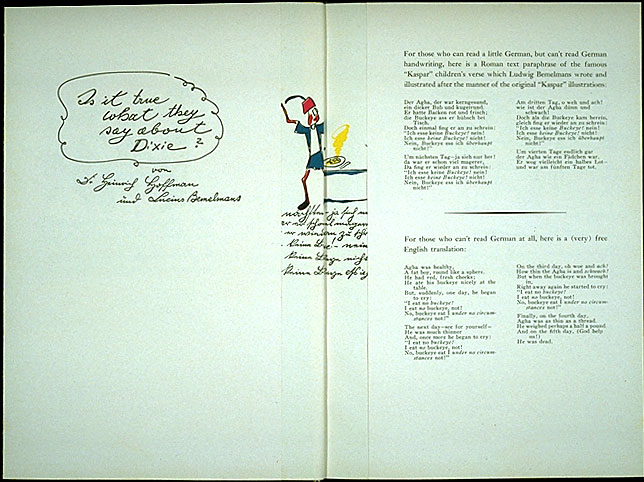 Is it true
what they
say about
Dixie?
von
Dr. Heinrich Hoffman
und Lucius Bemelmans
keine
keine
For those who can read a little German, but can't read German
handwriting, here is a Roman text paraphrase of the famous
"Kaspar" children's verse which Ludwig Bemelmans wrote and
illustrated after the manner of the original "Kaspar" illustrations:
Der Agha, der war kerngesund,
ein dicker Bub und kugelrund.
Er hatte Backen rot und frisch;
die Buckeye ass er hübsch bei
Tisch.
Doch einmal fing er an zu schrein:
"Ich esse keine Buckeye! nein!
Ich esse keine Buckeye! nicht!
Nein, Buckeye ess ich überhaupt
nicht!"
Um nächsten Tag—ja sieh nur her!
da war er schon viel magerer,
Da fing er wieder an zu schrein:
"Ich esse keine Buckeye! nein!
Ich esse keine Buckeye! nicht!
Nein, Buckeye ess ich überhaupt
nicht!"
Am dritten Tag, o weh und ach!
wie ist der Agha dünn und
schwach!
Doch als die Buckeye kam herein,
gleich fing er wieder an zu schrein:
"Ich esse keine Buckeye! nein!
Ich esse keine Buckeye! nicht!
Nein, Buckeye ess ich überhaupt
nicht!"
Um vierten Tage endlich gar
der Agha wie ein Fädchen war.
Er wog vielleicht ein halbes Lot—
und war am fünften Tage tot.
For those who can't read German at all, here is a (very) free
English translation:
Agha was healthy,
A fat boy, round like a sphere.
He had red, fresh cheeks;
He ate his buckeye nicely at the
table.
But, suddenly, one day, he began
to cry:
"I eat no buckeye!
I eat no buckeye, not!
No, buckeye eat I under no circum-
stances not!"
The next day—see for yourself—
He was much thinner
And, once more he began to cry:
"I eat no buckeye!
I eat no buckeye, not!
No, buckeye eat I under no circum-
stances not!"
On the third day, oh woe and ach!
How thin the Agha is and schwach!
But when the buckeye was brought
in,
Right away again he started to cry:
"I eat no buckeye!
I eat no buckeye, not!
No, buckeye eat I under no circum-
stances not!"
Finally, on the fourth day,
Agha was as thin as a thread.
He weighed perhaps a half a pound
And on the fifth day, (God help
us!)
He was dead.